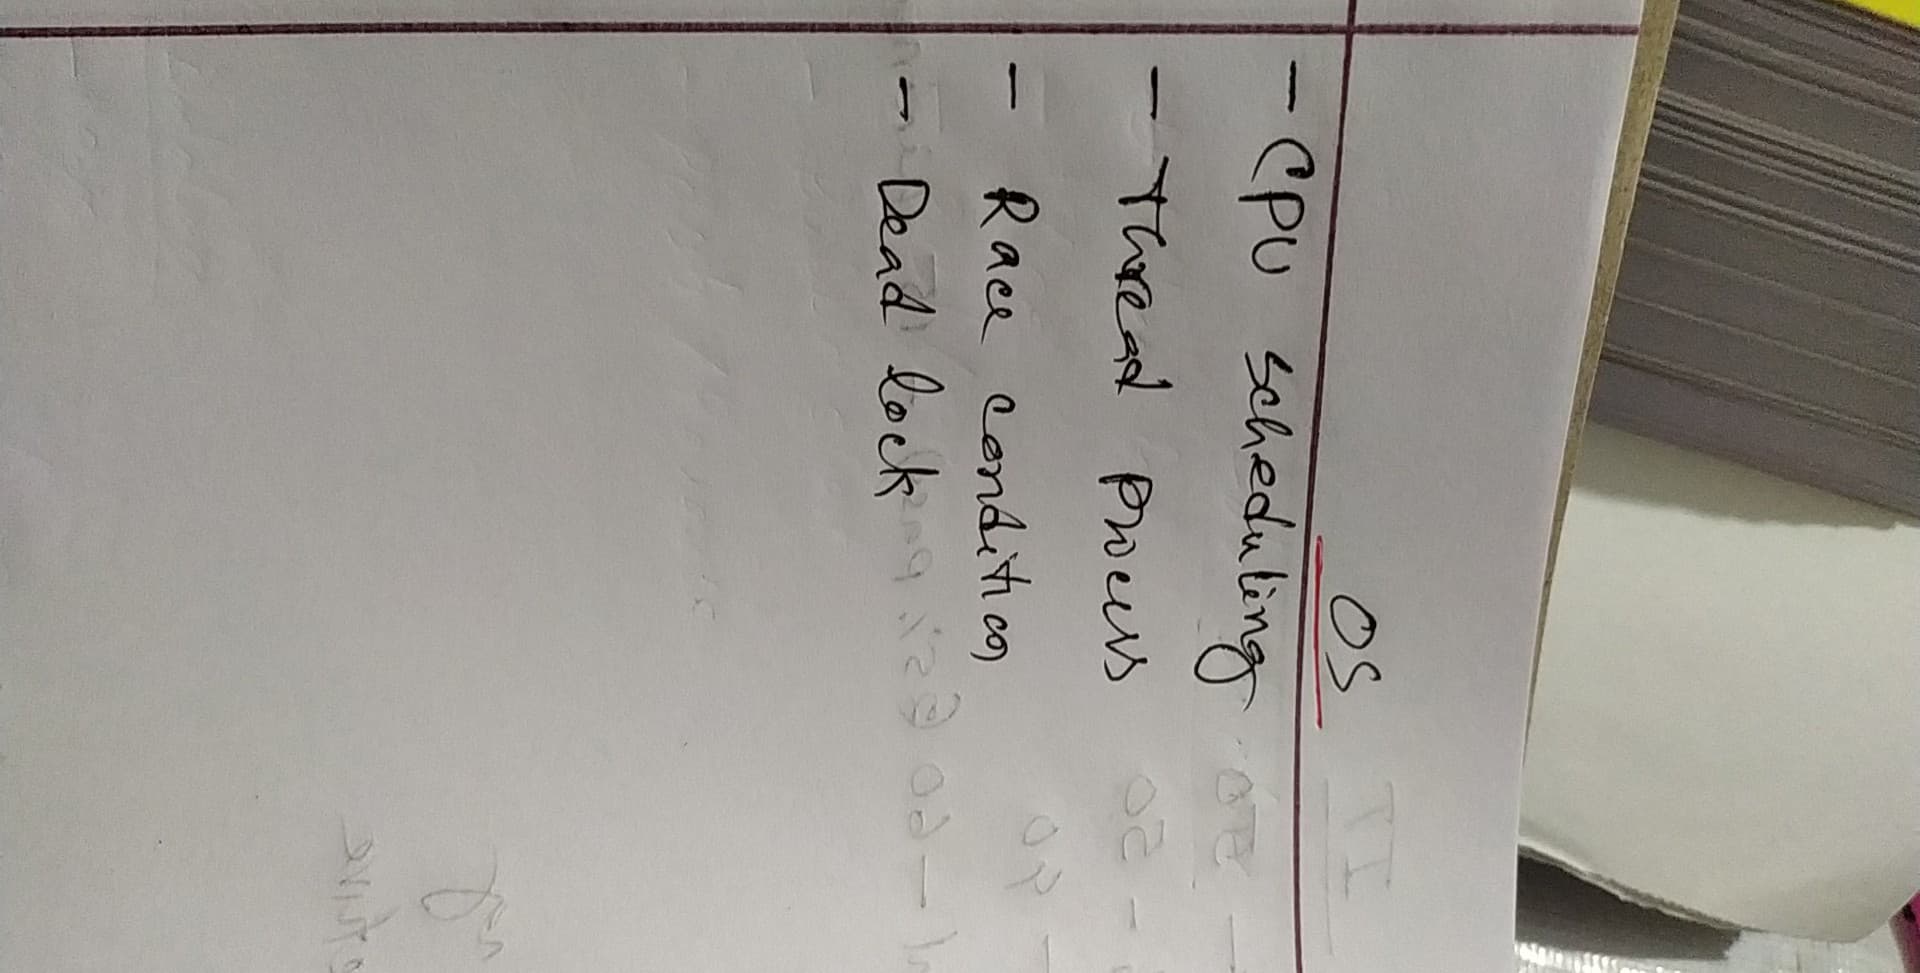 OS
- CPU scheduling
- Thread process
- Race condition
- Dead lock